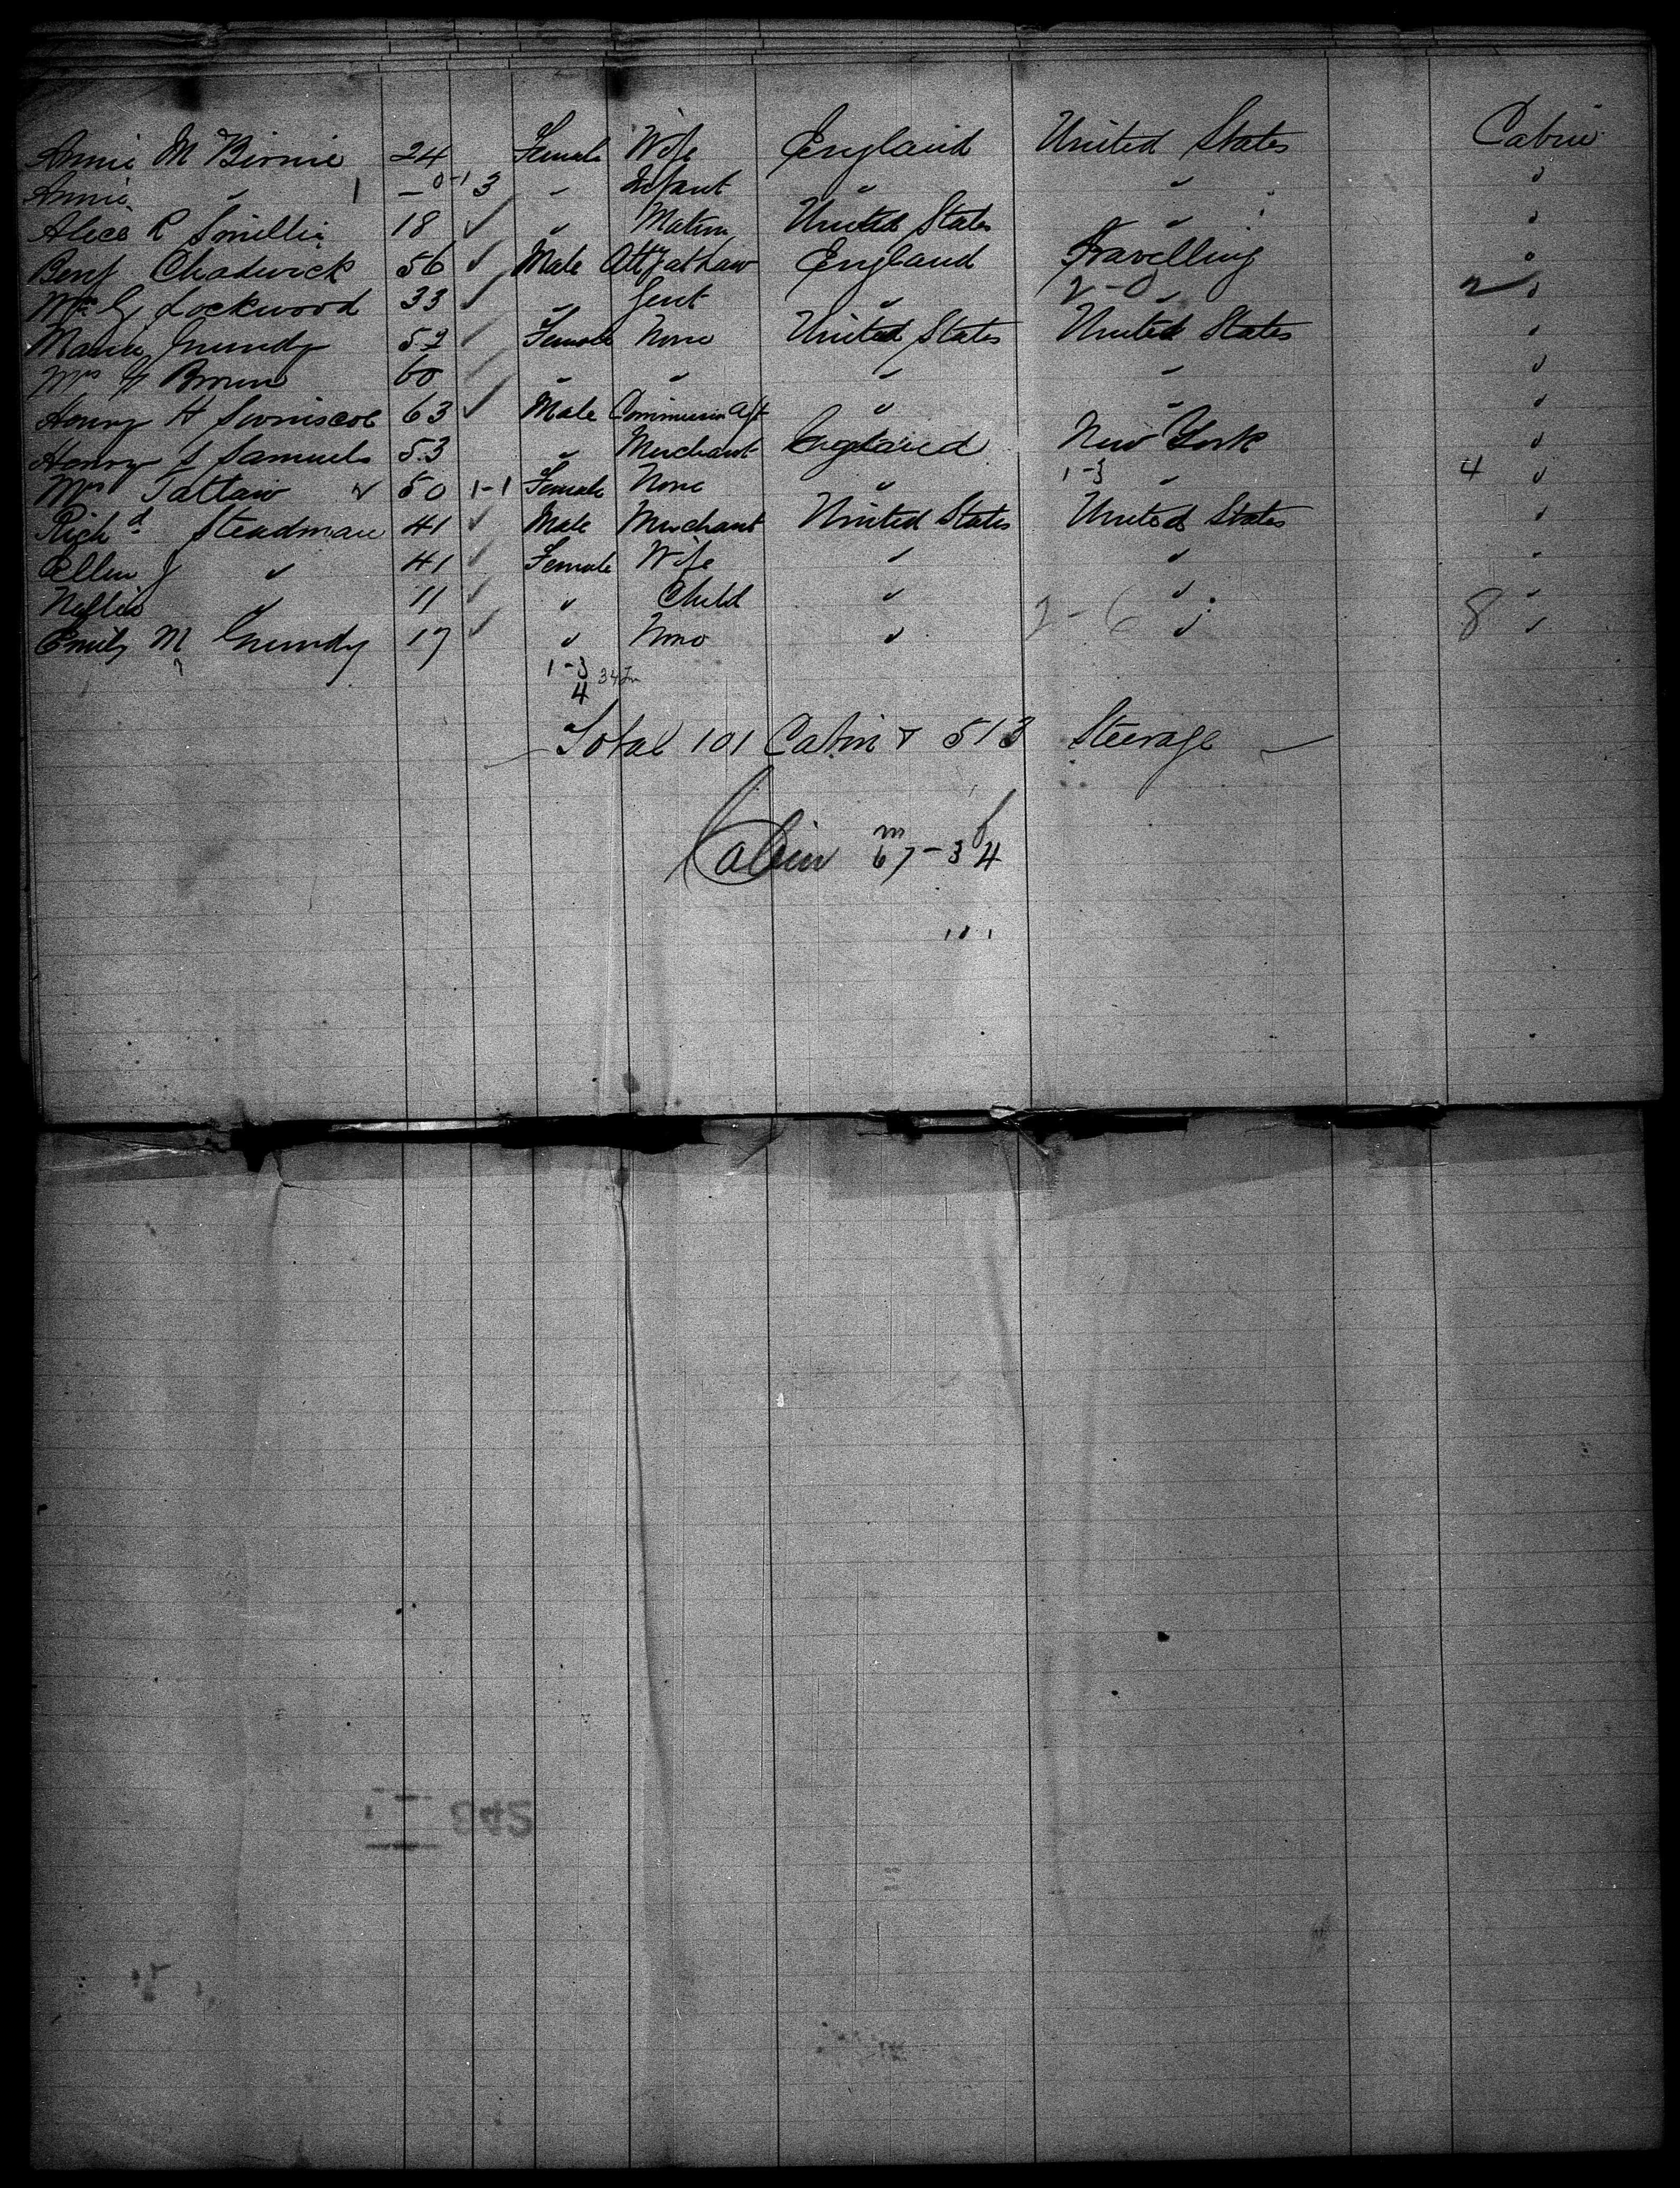 Annie M Birnie 24 Female Wife England United States Cabin
Annie " 1 – 0-1 3 " Infant " " "
Alice R Smillie 18 ✓ " Matron United States " "
Benj Chadwick 56 ✓ Male Att at Law England Travelling "
G Lockwood 33 ✓ " Gent " 2-0 " 2 "
Maria Grundy 52 ✓ Female None United States United States "
Mrs Brown 60 ✓ " " " " "
Henry H Swniscoe 63 ✓ Male Commission Agt " " "
Henry S Samuels 53 " Merchant England New York "
Mrs Tattaw 50 1-1 Female None " 1-3 " 4 "
Richd Steadman 41 ✓ Male Merchant United States United States "
Ellen J " 41 ✓ Female Wife " " "
Nellie " 11 ✓ " Child " " "
Emily M Grundy 17 ✓ " None " 2-6 " 8 "
1-3
4
Total 101 Cabin & 513 Steerage
m f
Cabin 67-34
101